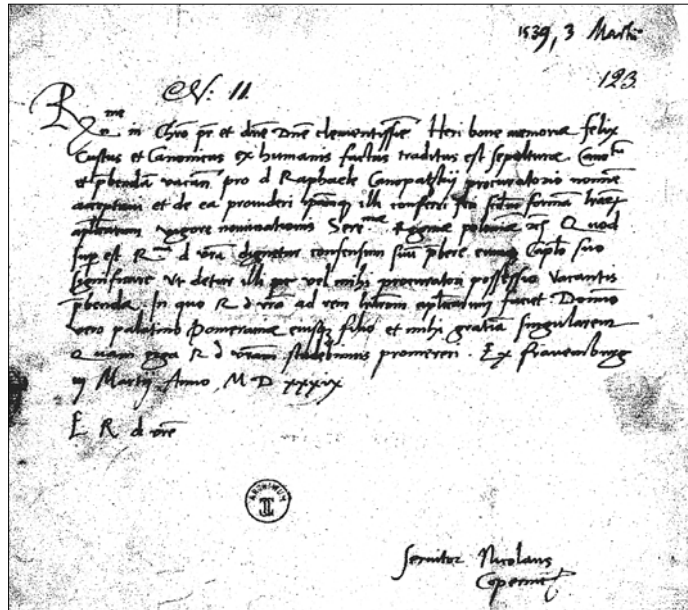 1539, 3 Martii
123.
N: 11.
R me
in Chro pr et dne Dne clementissime Heri bone memoriæ felix
Custos et Canonicus ex humanis factus traditus est sepulturæ
et pbendã vacan pro d Raphaele Canopatzkij procuratorio nomine
acceptavi et de ea provideri illi conferri formam
vigore nominationis Sere mæ Reginæ poloniæ Quod
sup est R d vra dignetur consensum suũ pbere Caplo suo
significare Vt detur illi vel mihi procuratori possessio vacantis
pbendæ, In quo R d vra ad rem faciet Domino
vero palatino Pomeraniæ eiusqz filio et mihi gratiã singularem
Quam erga R d vram studebimus promereri. Ex frauenburg
iij Martij Anno, M D xxxix
E R d vre
ARCHIVUM
Seruitor Nicolaus
Copernic